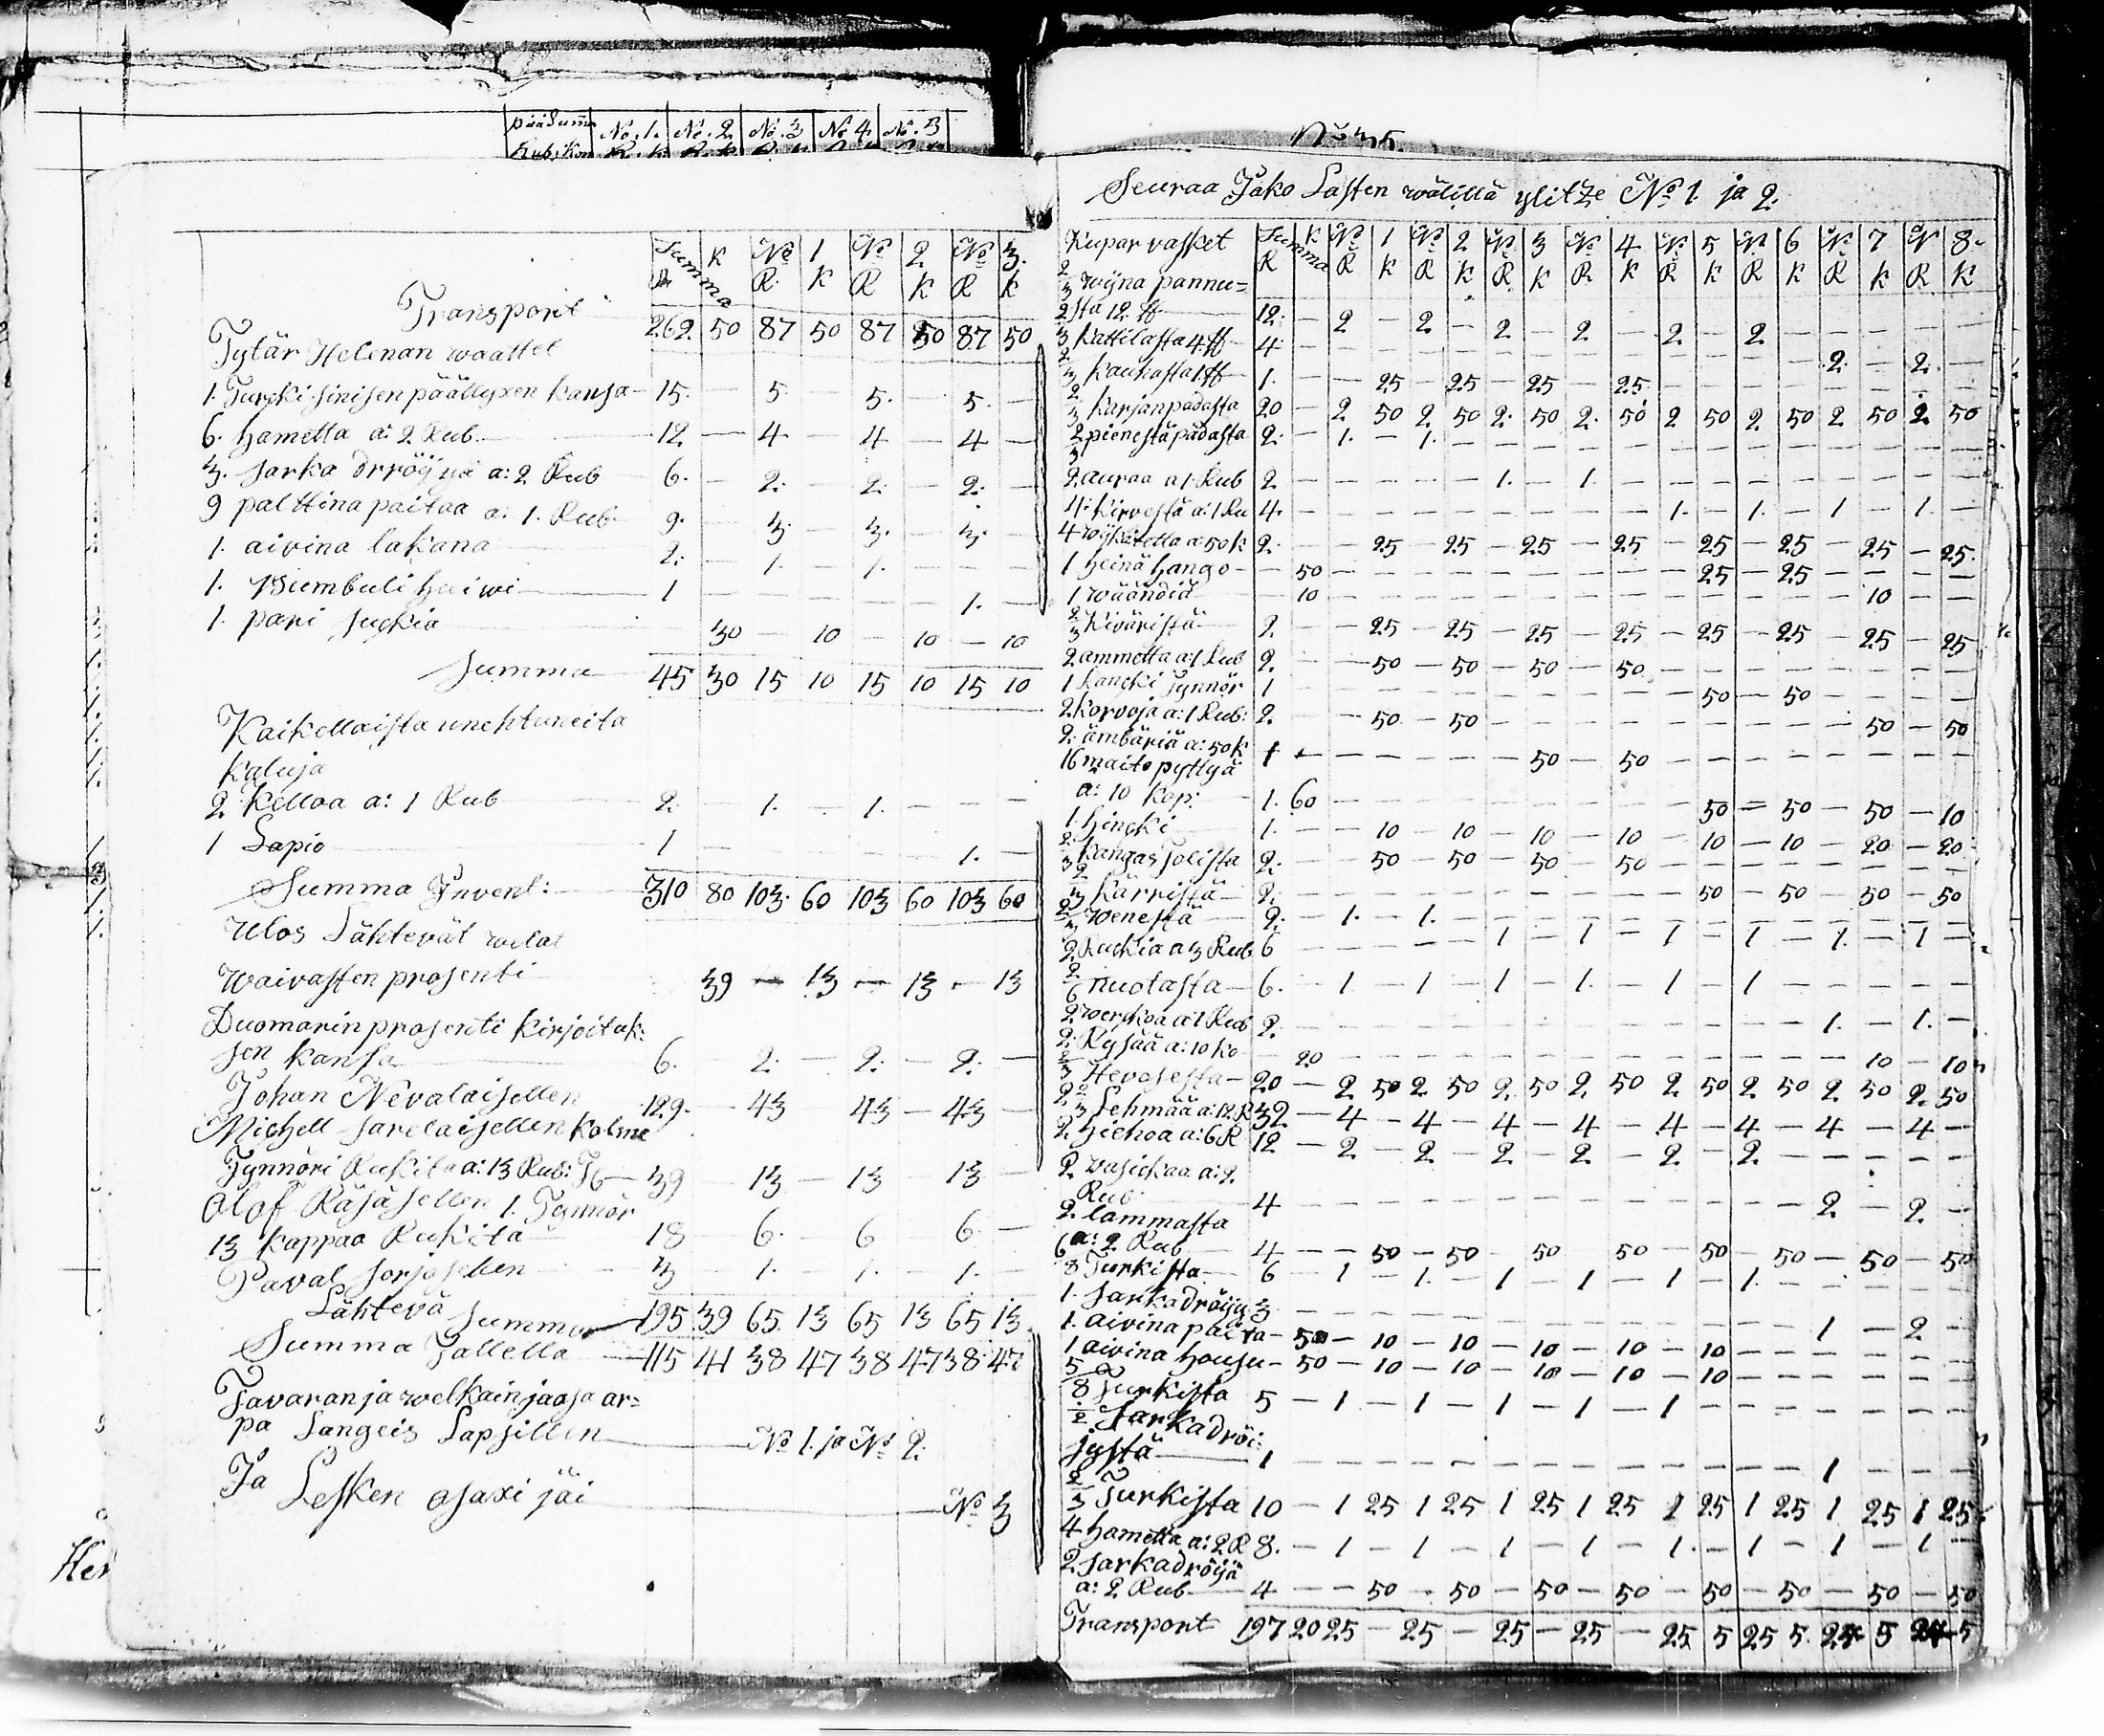 pääsum̄a No. 1. No. 2. No. 3 No 4 No. 5
Rub. Kop R. k R. k R. k
Summa k No 1 No 2 No 3.
R R. k R k R k
Transport 262 50 87 50 87 50 87 50
Tytär Helenan waattet
1. Turcki sinisen päällyxen kansa — 15. — 5. — 5. — 5. —
6. hametta a: 2 Rub. — 12 — 4 — 4 — 4 —
3. sarka drröijyä a: 2 Rub 6. — 2. — 2. — 2. —
9 palttina paitaa a: 1. Rub. 9. — 3. — 3. — 3. —
1. aivina lakana 2. — 1. — 1. — — —
1. huiwi 1 — — — — — 1. —
1. pari suckia 30 — 10 — 10 — 10
Summa 45 30 15 10 15 10 15 10
Kaikellaista unehtuneita
kaluja
2. Kelloa a: 1 Rub 2. 1. — 1. — — —
1 Lapio 1 — — — — 1. —
Summa Invent: 310 80 103. 60 103 60 103 60
Ulos Lähtevät welat
Waivasten prosenti 39 — 13 — 13 — 13
Duomarin prosenti kirjoituk:
sen kansa 6. 2. — 2. — 2. —
Johan Nevalaisellen 129. — 43 43 — 43 —
Michell Sarelaisellen kolme
Tynnöri Rukita a: 13 Rub: 39 — 13 — 13 — 13 —
Olof Räsäsellen 1. Tynnör
13 kappaa Rukita 18 6. — 6 6. —
Paval Sorjosellen 3 — 1. — 1. — 1. —
Lähtevä Summa 195 39 65 13 65 13 65 13
Summa Jällellä 115 41 38 47 38 47 38 47
Tavaran ja welkain jaosa ar=
pa Langeis Lapsillen No 1. ja No 2.
Ja Lesken osaxi jäi No 3
Her
No 35.
Seuraa Jako Lasten wälillä ylitze No 1. ja 2.
Kupar vasket Summa k No 1 No 2 No 3 No 4 No 5 No 6 No 7 No 8.
R R k R k R k R k R k R k R k R k
2/3 wijna pannu=
sta 12 ℔ 12. — 2 — 2 — 2 — 2 — 2 — 2 — — — — —
2/3 Kattilasta 4 ℔ 4 — — — — — — — — — — — — — 2. — 2. —
2/3 kauhasta 1 ℔ 1. — — 25 — 25 — 25 — 25 — — — — — — — —
2/3 Karjanpadasta 20 — 2 50 2 50 2 50 2 50 2 50 2 50 2 50 2 50
2/3 pienestä padasta 2. — 1. — 1. — — — — — — — — — — — — —
2 auraa a 1 Rub 2 — — — — — 1. — 1. — — — — — — — — —
4 kirvestä a: 1 Ru 4. — — — — — — — — — 1. — 1. — 1 — 1. —
4 wijkatetta a 50 k 2. — — 25 — 25 — 25 — 25 — 25 — 25 — 25 — 25
1 heinä hango — 50 — — — — — — — — — 25 — 25 — — — —
1 wäändiä 10 — — — — — — — — — — — — — 10 — —
2/3 Kiväristä 2 — — 25 — 25 — 25 — 25 — 25 — 25 — 25 — 25
2 ammetta a: 1 Rub 2. — — 50 — 50 — 50 — 50 — — — — — — — —
1 kancki Tynnör 1 — — — — — — — — — — 50 — 50 — — — —
2 korvoja a: 1 Rub: 2. — 50 — 50 — — — — — — — — — 50 — 50
2. ämbäriä a: 50 k 1 — — — — — — 50 — 50 — — — — — — — —
16 maito pyttyä
a: 10 kop: 1. 60 — — — — — — — — — 50 — 50 — 50 — 10
1. hincki 1. — — 10 — 10 — 10 — 10 — 10 — 10 — 20 — 20
2/3 kangas solista 2. — — 50 — 50 — 50 — 50 — — — — — — — —
2/3 Kärristä 2. — — — — — — — — — — 50 — 50 — 50 — 50
2/3 Wenestä 2. — 1. — 1. — — — — — — — — — — — — —
2. a 3 Rub 6 — — — — — 1 — 1 — 1 — 1 — 1. — 1 —
2/6 nuotasta 6. — 1. — 1 — 1 — 1. — 1 — 1 — — — — —
2 werckoa a: 1 Rub 2. — — — — — — — — — — — — — 1. — 1. —
2. Rysää a: 10 ko — 20 — — — — — — — — — — — — — 10 — 10
2/3 Hevosesta 20 — 2 50 2 50 2. 50 2 50 2 50 2 50 2 50 2. 50
2/3 Lehmää a: 12 R 32 — 4 — 4 — 4 — 4 — 4 — 4 — 4 — 4 —
2. hiehoa a: 6 R 12 — 2 — 2 — 2 — 2 — 2 — 2 — — — — —
2 vasickaa a: 2.
Rub 4 — — — — — — — — — — — — — 2 — 2. —
2. lammasta
a: 2 Rub 4 — — 50 — 50 — 50 — 50 — 50 — 50 — 50 — 50
6/8 Turkista 6 — 1 — 1 — 1 — 1 — 1 — 1. — — — — —
1. sarkadröijy 3 — — — — — — — — — — — — — 1 — 2 —
1. aivina paita — 50 — 10 — 10 — 10 — 10 — 10 — — — — — —
1 aivina housu — 50 — 10 — 10 — 10 — 10 — 10 — — — — — —
5/8 Turkista 5 — 1 — 1 — 1 — 1 — 1 — — — — — — —
1/2 sarkadröi
jystä 1 — — — — — — — — — — — — — 1 — — —
2/3 Turkista 10 — 1 25 1 25 1 25 1 25 1 25 1 25 1 25 1 25
4 hametta a: 2 R 8. — 1 — 1 — 1 — 1 — 1. — 1 — 1 — 1 —
2 sarkadröijä
a: 2 Rub 4 — — 50 — 50 — 50 — 50 — 50 — 50 — 50 — 50
Transport 197 20 25 — 25 — 25 — 25 — 25 5 25 5 24 5 24 5